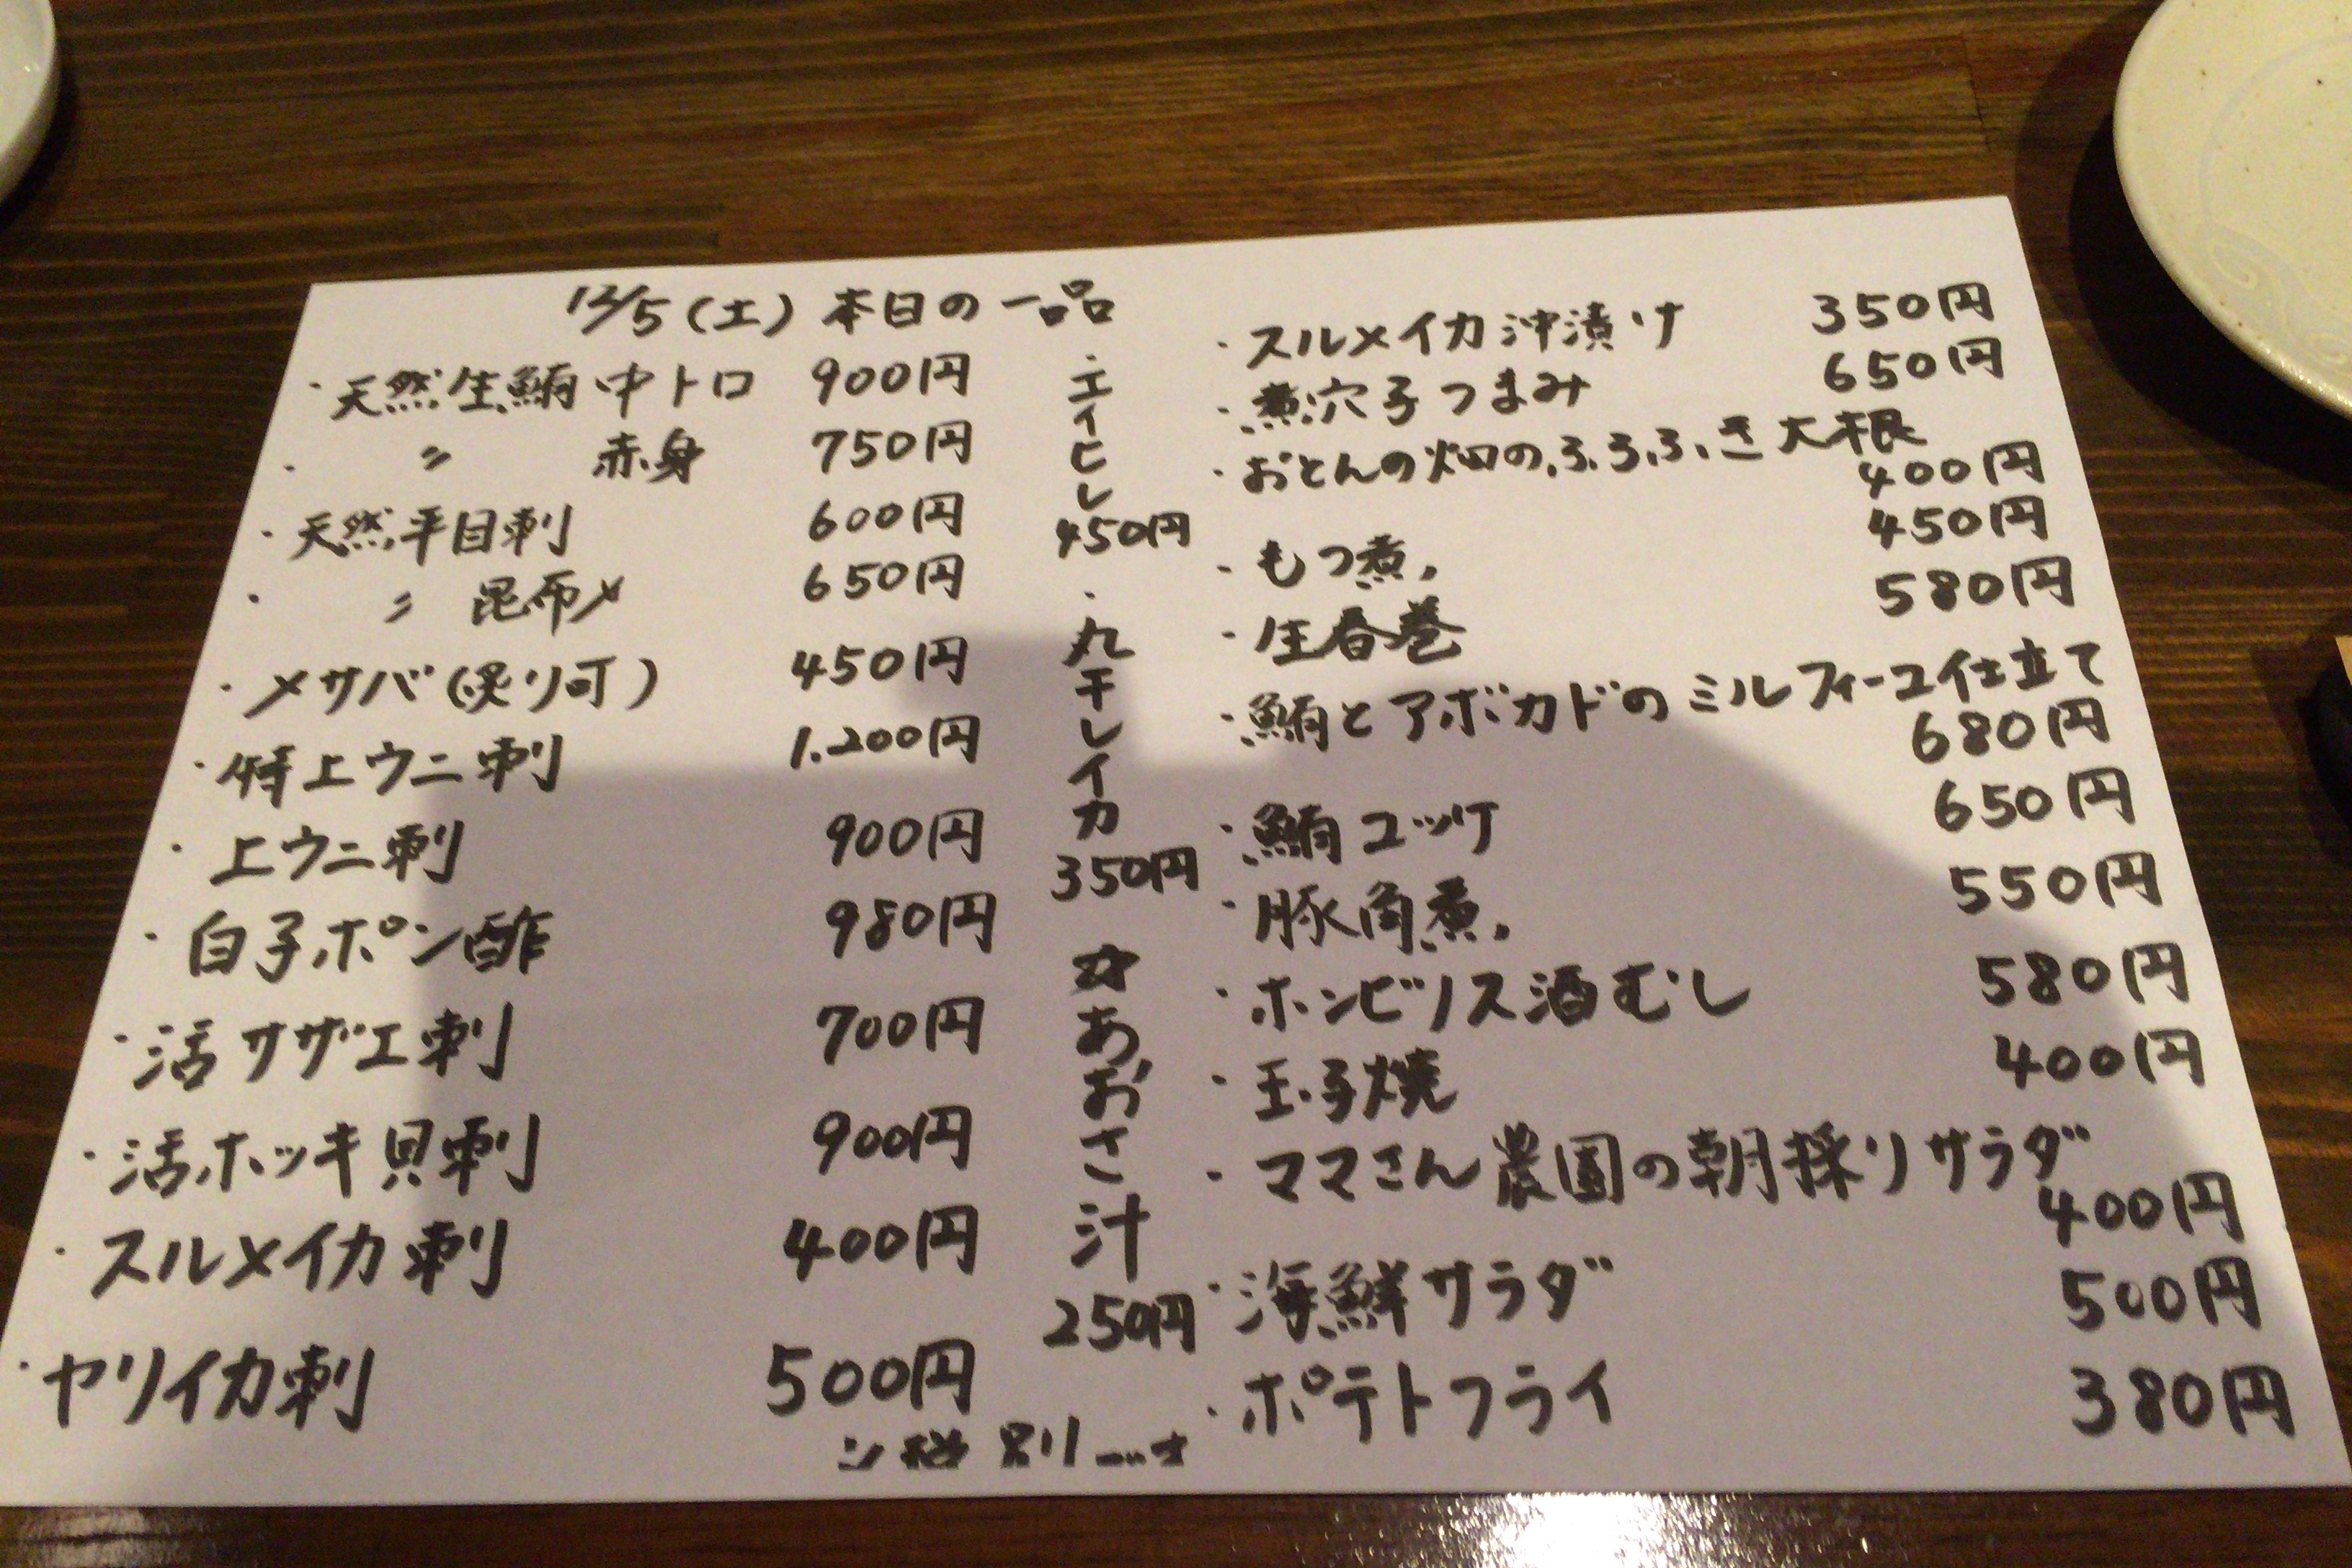 12/5(土) 本日の一品
・天然生鮪中トロ 900円
・〃 赤身 750円
・天然平目刺 600円
・〃 昆布〆 650円
・〆サバ(炙り可) 450円
・特上ウニ刺 1.200円
・上ウニ刺 900円
・白子ポン酢 980円
・活サザエ刺 700円
・活ホッキ貝刺 900円
・スルメイカ刺 400円
・ヤリイカ刺 500円
・エイヒレ
450円
・丸干しイカ
350円
☆あおさ汁
250円
税別
・スルメイカ沖漬け 350円
・煮穴子つまみ 650円
・おとんの畑のふろふき大根
400円
・もつ煮 450円
・生春巻 580円
・鮪とアボカドのミルフィーユ仕立て
680円
・鮪ユッケ 650円
・豚角煮 550円
・ホンビノス酒むし 580円
・玉子焼 400円
・ママさん農園の朝採りサラダ
400円
・海鮮サラダ 500円
・ポテトフライ 380円